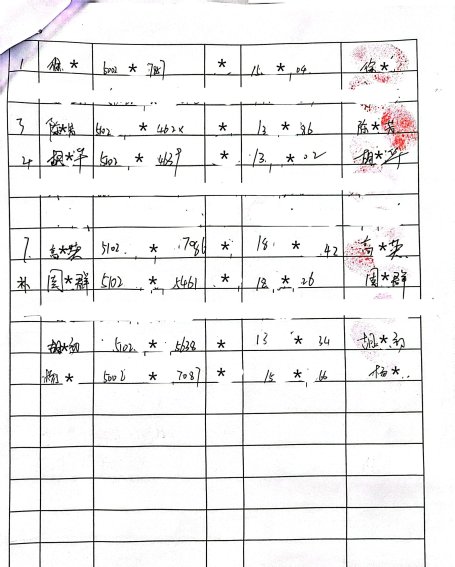 1 徐* 5002 * 787 * 15 * 04 徐*
3 陈*芳 5102 * 462X * 13 * 86 陈*芳
4 胡*华 5102 * 4639 * 13 * 02 胡*华
7 高*英 5102 * 7986 * 18 * 42 高*英
补 周*群 5102 * 5461 * 18 * 26 周*群
胡*初 5102 * 5628 * 13 * 34 胡*初
杨* 5002 * 7087 * 15 * 66 杨*